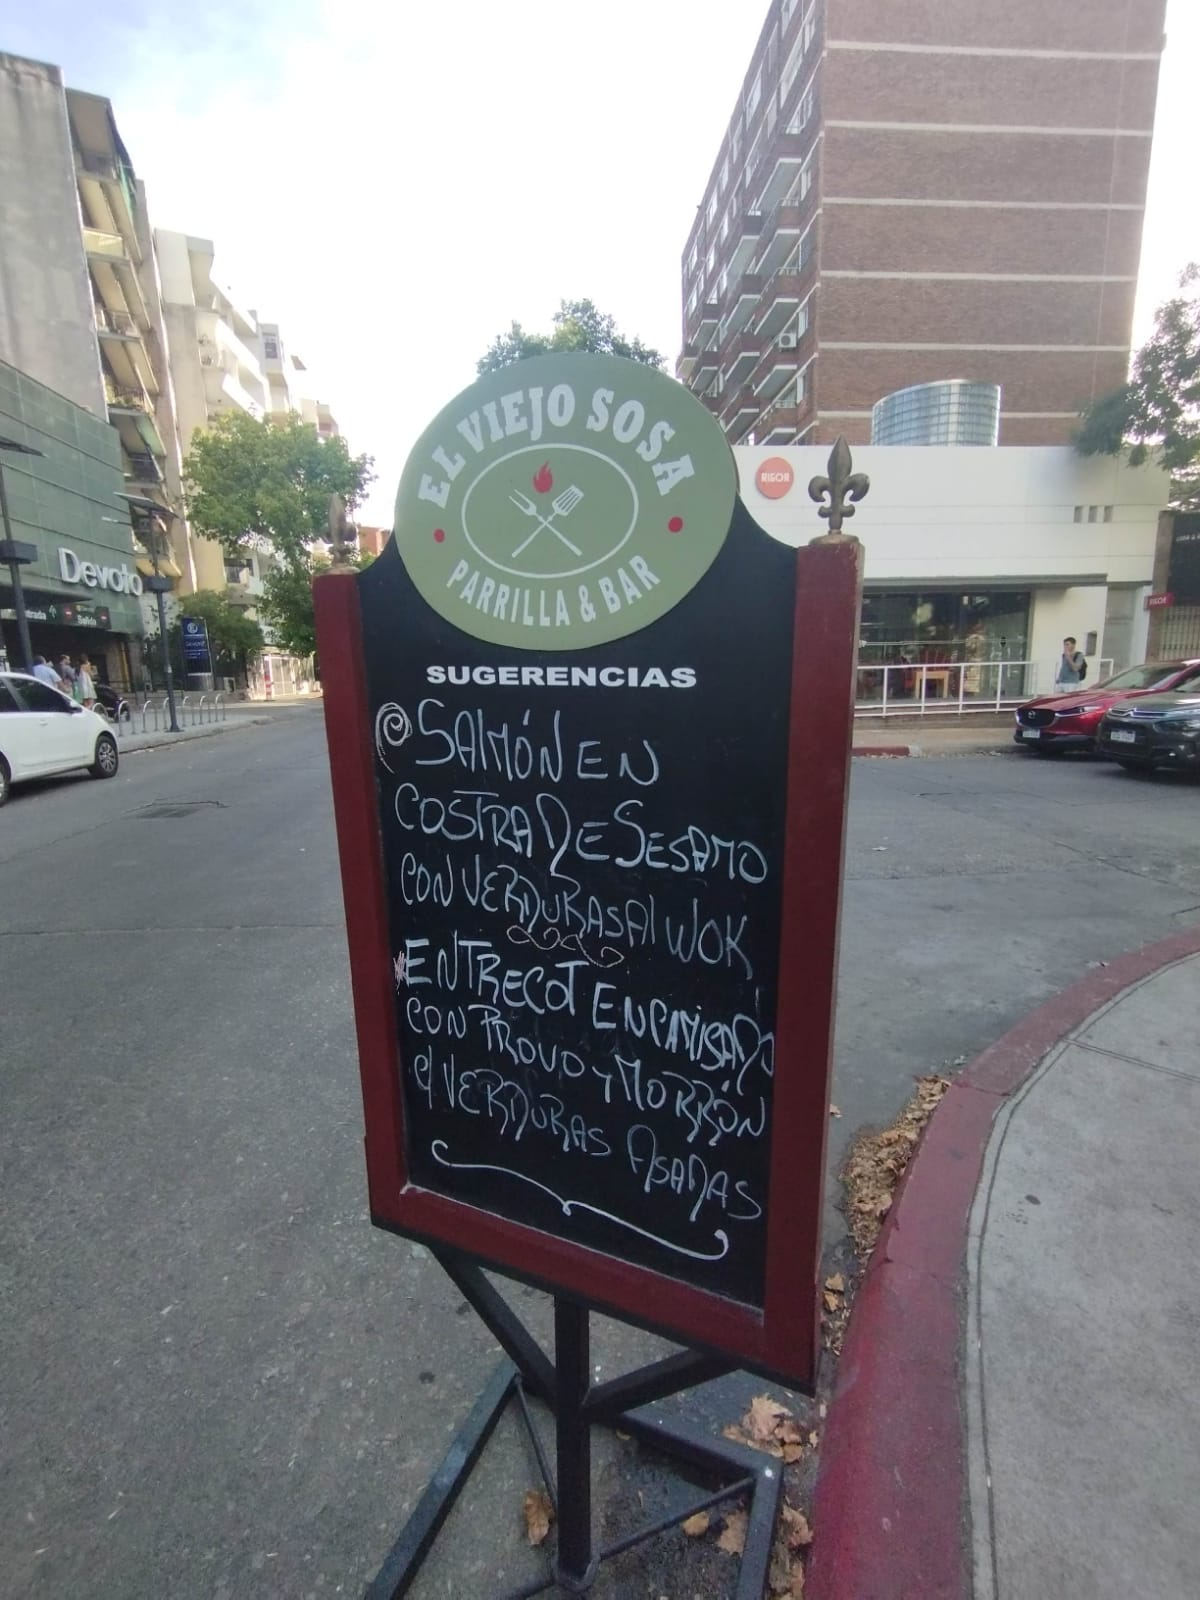 EL VIEJO SOSA
PARRILLA & BAR
SUGERENCIAS
SALMÓN EN
COSTRA DE SESAMO
CON VERDURAS AL WOK
ENTRECOT ENCAMISADO
CON PROVO Y MORRÓN
C/ VERDURAS ASADAS
Devoto
Salida
RIGOR
RIGOR